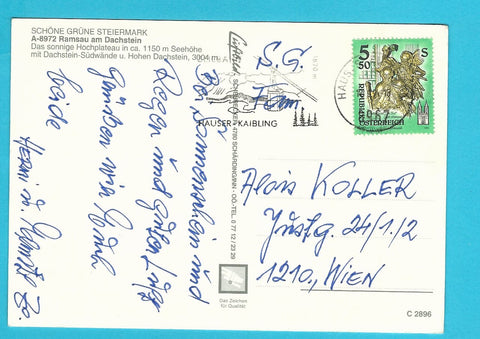 SCHÖNE GRÜNE STEIERMARK
A-8972 Ramsau am Dachstein
Das sonnige Hochplateau in ca. 1150 m Seehöhe
mit Dachstein-Südwände u. Hohen Dachstein, 3004 m.
Bei Sonnenschein und
Regen und guter
Grüßen wir Euch
beide
HAUSER-KAIBLING
HAUS
8967
5 50 S
REPUBLIK
ÖSTERREICH
S.G.
Fam.
Alois KOLLER
24/1/2
1210, WIEN
4780 SCHÄRDING/INN - OÖ.-TEL. 0 77 12 / 23 29
Das Zeichen
für Qualität
C 2896